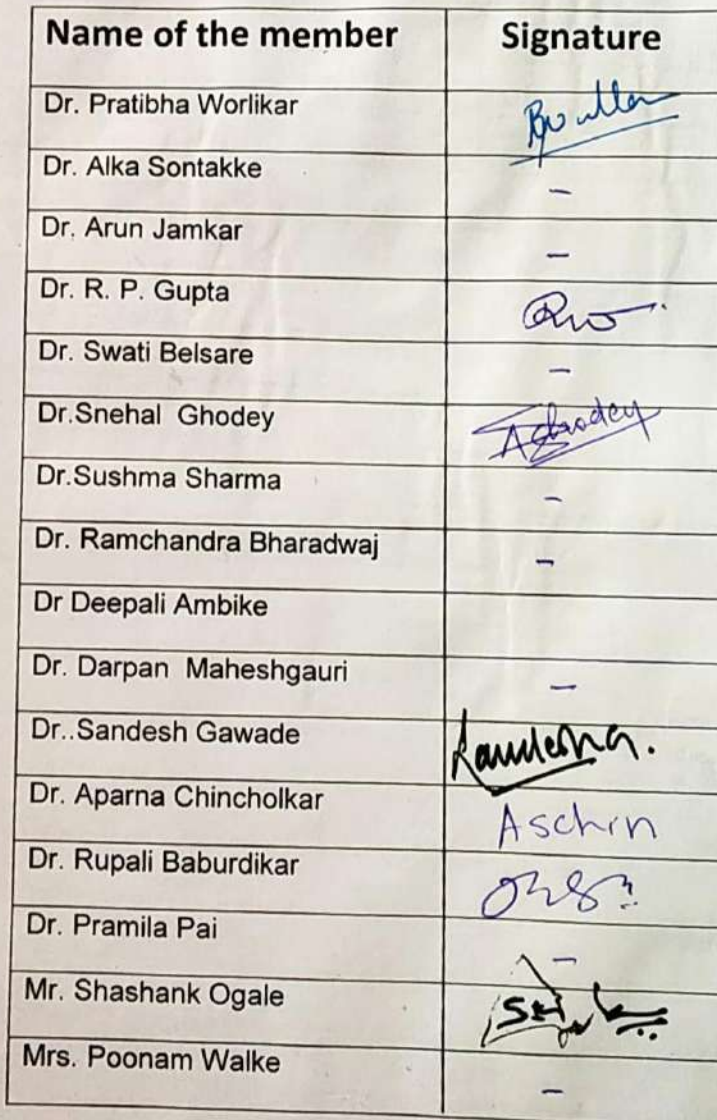 Name of the member Signature
Dr. Pratibha Worlikar
Dr. Alka Sontakke -
Dr. Arun Jamkar -
Dr. R. P. Gupta
Dr. Swati Belsare -
Dr.Snehal Ghodey
Dr.Sushma Sharma -
Dr. Ramchandra Bharadwaj -
Dr Deepali Ambike
Dr. Darpan Maheshgauri -
Dr..Sandesh Gawade
Dr. Aparna Chincholkar Aschin
Dr. Rupali Baburdikar
Dr. Pramila Pai -
Mr. Shashank Ogale
Mrs. Poonam Walke -